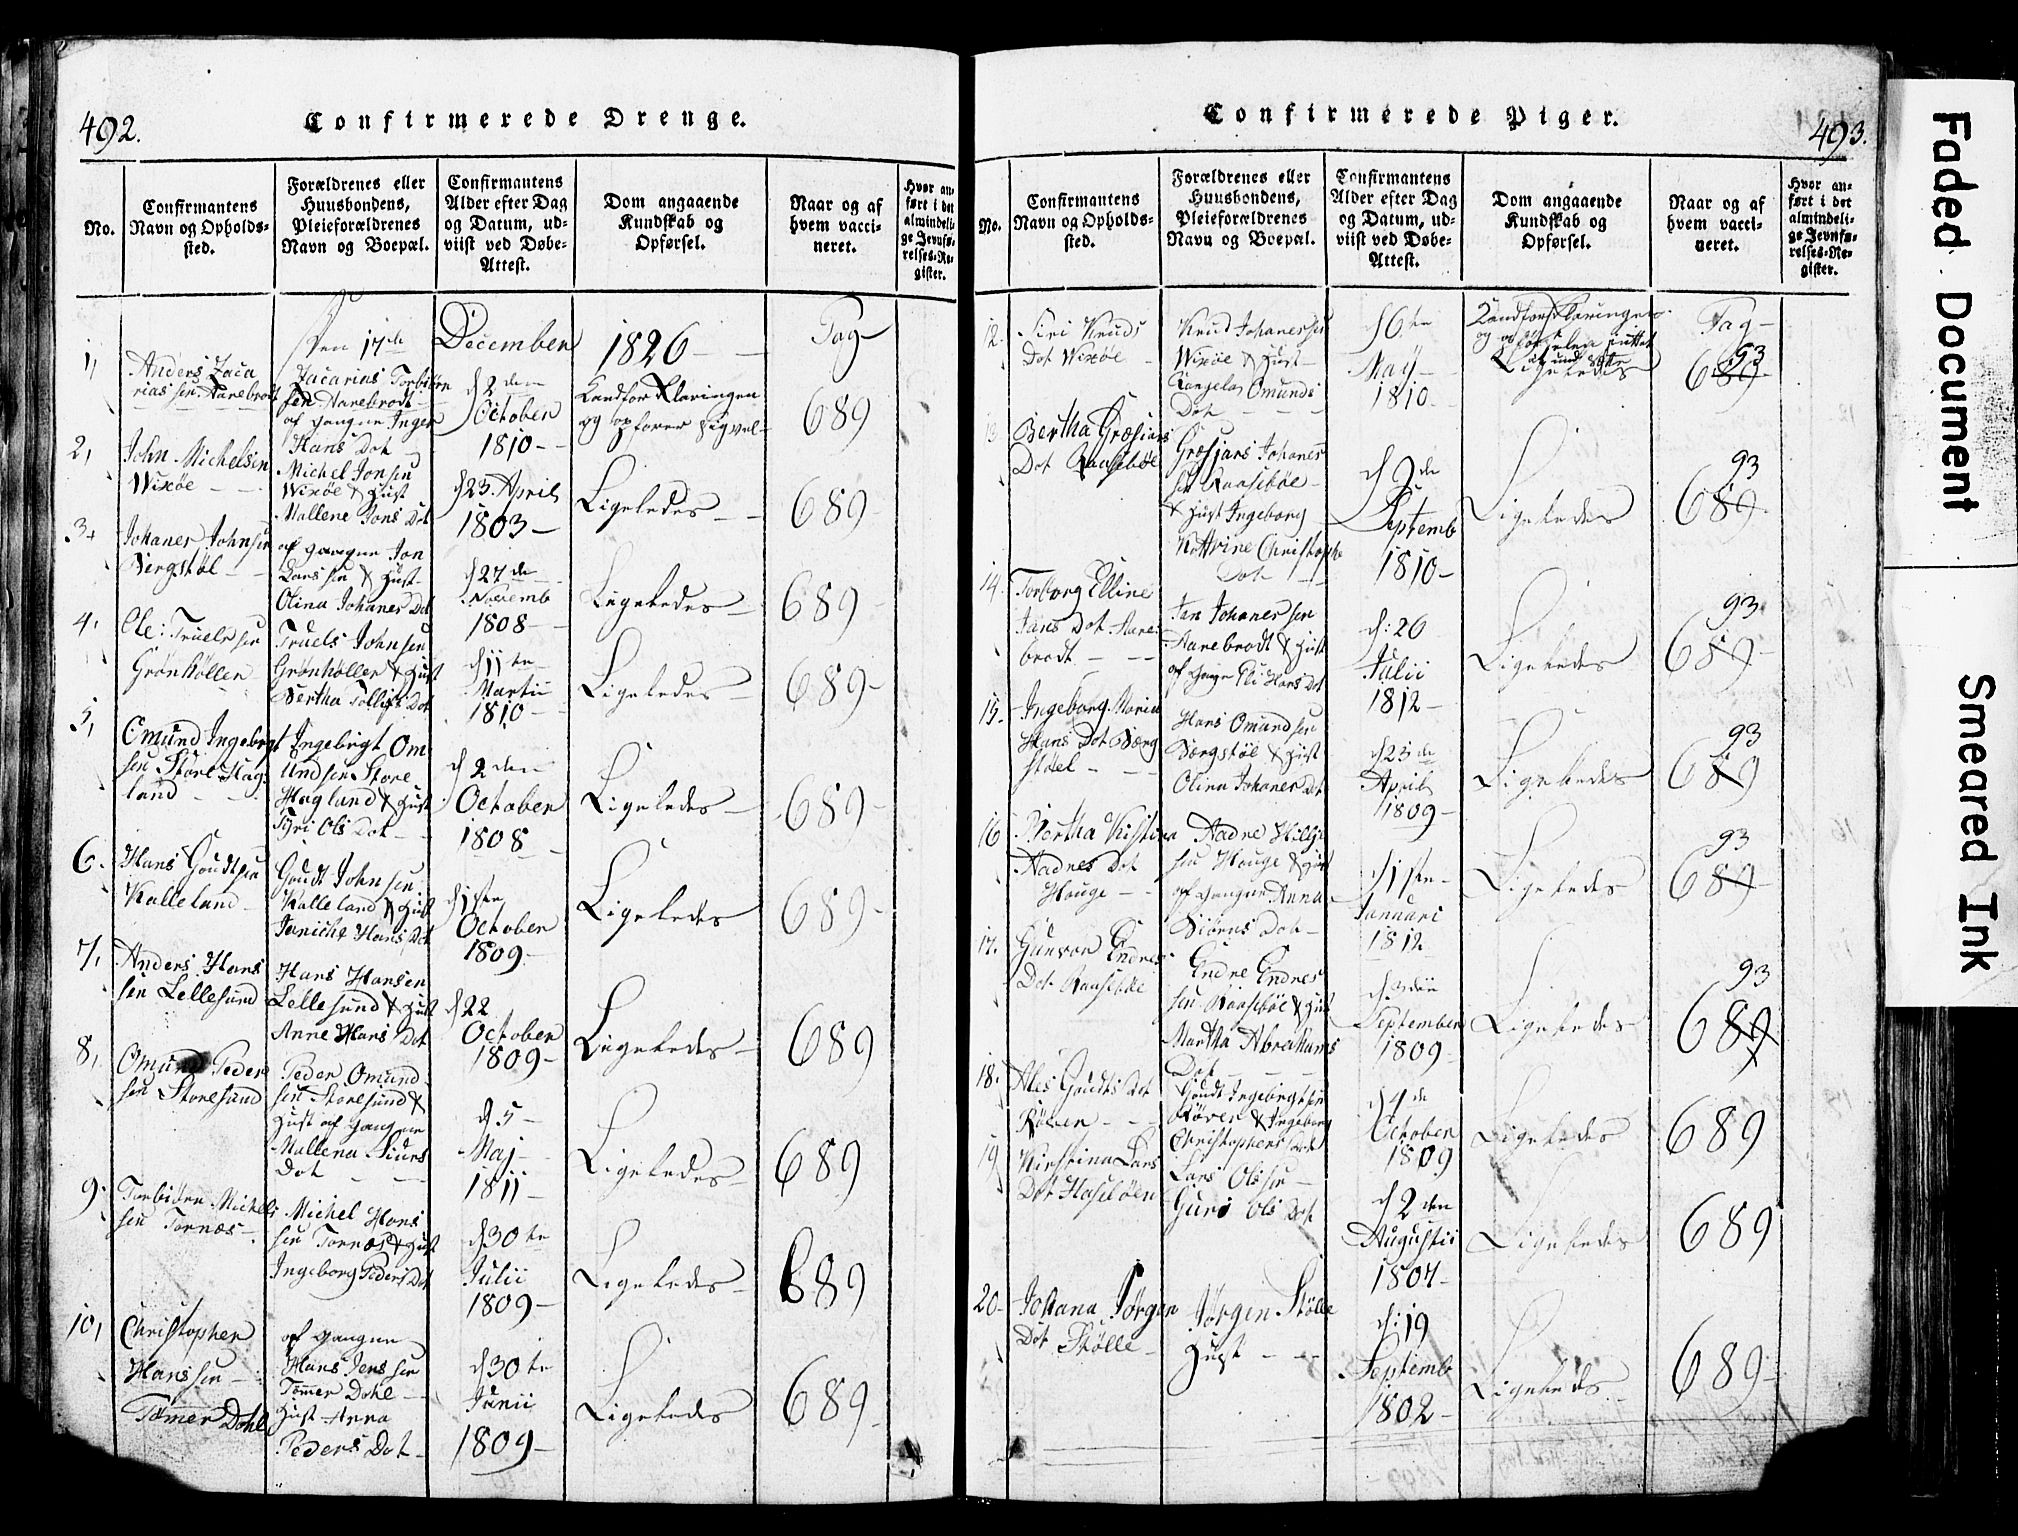 492.
Confirmerede Drenge.
No.
Confirmantens
Navn og Opholds-
sted.
Forældrenes eller
Huusbondens,
Pleieforældrenes
Navn og Boepæl.
Confirmantens
Alder efter Dag
og Datum, ud-
viist ved Døbe-
Attest.
Dom angaaende
Kundskab og
Opførsel.
Naar og af
hvem vacci-
neret.
Hvor an-
ført i det
almindeli-
ge Jevnfø-
relses-Re-
gister.
Den 17de December 1826
Tag
1,
Anders Zaca
rias sen Aarebrodt
Zacarias Torbiørn
sen Aarebrodt
Inger
Hans Dot
d 2den
October
1810
689
2,
John Michelsen
Wixøe
Michel Jonsen
Wixøe & Hust
Mallene Jons Dot
d 23. April
1803
Ligeledes
689
3,
Johaner Johnsen
Bergstøl
Jon
Lars sen & Hust
Olina Johaner Dot
d 27de
Novemb
1808
Ligeledes
689
4,
Ole: Truelssen
Grønhøllen
Truels Johnsen
Grønhøllen & Hust
Bertha Dot
d 11te
Martii
1810
Ligeledes
689
5,
Omund Ingebrigt
sen Store Hag
land
Ingebrigt Om
und sen Store
Hagland & Hust
Siri Ols Dot
d 2den
October
1808
Ligeledes
689
6.
Hans Goudtsen
Kalleland
Goudt Johnsen
Kalleland & Hust
Janiche Hans Dot
d 1ste
October
1809
Ligeledes
689
7,
Anders Hans
sen Lellesund
Hans Hansen
Lellesund & Hust
Anne Hans Dot
d 22
October
1809
Ligeledes
689
8,
Omund Peder
sen Storesund
Peder Omund
sen Storesund &
Hust
Mallena Siurs
Dot
d 5
Maj
1811
Ligeledes
689
9.
Torbiørn Michels
sen Tornæs
Michel Hans
sen Tornæs & Hust
Ingeborg Peders Dot
d 30te
Julii
1809
Ligeledes
689
10,
Christopher
Hanssen
Tømer Dahl
Hans Jenssen
Tømer Dahl
Hust Anna
Peders Dot
d 30te
Junii
1809
Ligeledes
689
Confirmerede Piger.
493.
No.
Confirmantens
Navn og Opholds-
sted.
Forældrenes eller
Huusbondens,
Pleieforældrenes
Navn og Boepæl.
Confirmantens
Alder efter Dag
og Datum, ud-
viist ved Døbe-
Attest.
Dom angaaende
Kundskab og
Opførsel.
Naar og af
hvem vacci-
neret.
Hvor an-
ført i det
almindeli-
ge Jevnfø-
relses-Re-
gister.
12.
Siri Knuds
Dot Wixøe
Knud Johanessen
Wixøe & Hust
Omunds
Dot
d 6te
May
1810
Ligeledes
Tag
93
689
13
Bertha Græsjans
Dot Raasebøe
Græsjans Johaner
sen Raasebøe
& Hust Ingeborg
Kattrine Christophe
Dot
d 9de
Septemb
1810
Ligeledes
93
689
14.
Torborg Elline
Jans Dot Aare
brodt
Jan Johanersen
Aarebrodt & Hust
Eli Hans Dot
d: 26
Julii
1812
Ligeledes
93
689
15.
Ingeborg Maria
Hans Dot Berg
støel
Hans Omundsen
Bergstøl & Hust
Olina Johaner Dot
d 23de
April
1809
Ligeledes
93
689
16
Bertha Kistina
Aadnes Dot
Hauge
Aadne
sen Hauge & Hust
Anna
Biørns Dot
d 1ste
Januari
1812
Ligeledes
93
689
17.
Gunvor Endres
Dot Raasebøe
Endre Endres
sen Raasebøe & Hust
Martha Abrahams
Dot
d. 3die
September
1809
Ligeledes
93
689
18.
Ales Goudts Dot
Røven
Goudt Ingebrigtsen
Røven & Ingeborg
Christophers Dot
d 4de
October
1809
Ligeledes
689
19
Kirstina Lars
Dot Hasseløen
Lars Olssen
Guro Ols Dot
d 2den
Augustii
1807
Ligeledes
689
20
Johana Jørgen
Dot Stølle
Jørgen Stølle
Hust
d: 19
Septemb
1802
Ligeledes
689
Faded Document
Smeared Ink